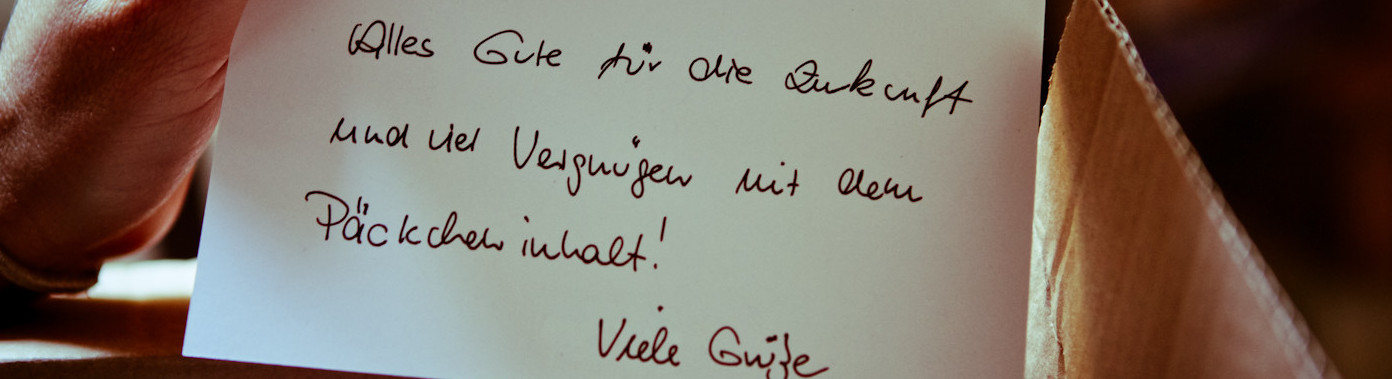 Alles Gute für die Zukunft
und viel Vergnügen mit dem
Päckcheninhalt!
Viele Grüße